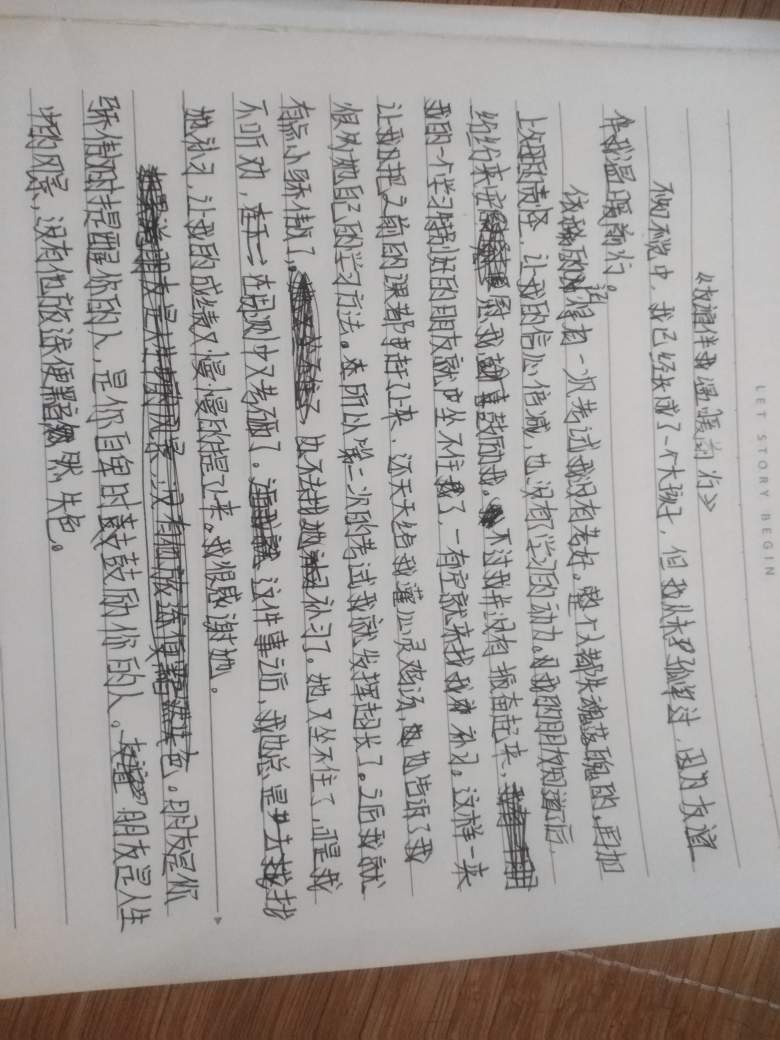 LET STORY BEGIN
《友谊伴我温暖前行》
不知不觉中，我已经长成了一个大孩子，但我从未孤单过，因为友谊
伴我温暖前行。
依稀记得有一次考试我没有考好。整个人都失魂落魄的，再加
上老师的责怪，让我的信心倍减，也没有了学习的动力。我的朋友知道了后，
纷纷来安慰我鼓励我。不过我并没有振奋起来，
我的一个学习特别好的朋友就坐不住了，一有空就来找我补习。这样一来
让我把之前的课都赶了上来，还天天给我灌心灵鸡汤，也告诉了我
很多她自己的学习方法。所以第二次的考试我就发挥超长了。之后我就
有点小骄傲了。也不去找她补习了。她又坐不住了，可是我
不听劝，在下一次测中又考砸了。这件事之后，我也总是去找
她补习，让我的成绩又慢慢的提了上来。我很感谢她。
朋友是你
骄傲时提醒你的人，是你自卑时鼓励你的人。朋友是人生
中的风景，没有他旅途便黯然失色。